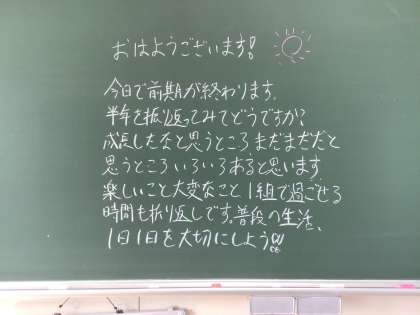 おはようございます!
今日で前期が終わります。
半年を振り返ってみてどうですか?
成長したなと思うところまだまだだと
思うところいろいろあると思います。
楽しいこと大変なこと1組で過ごせる
時間も折り返しです。普段の生活、
1日1日を大切にしよう!!